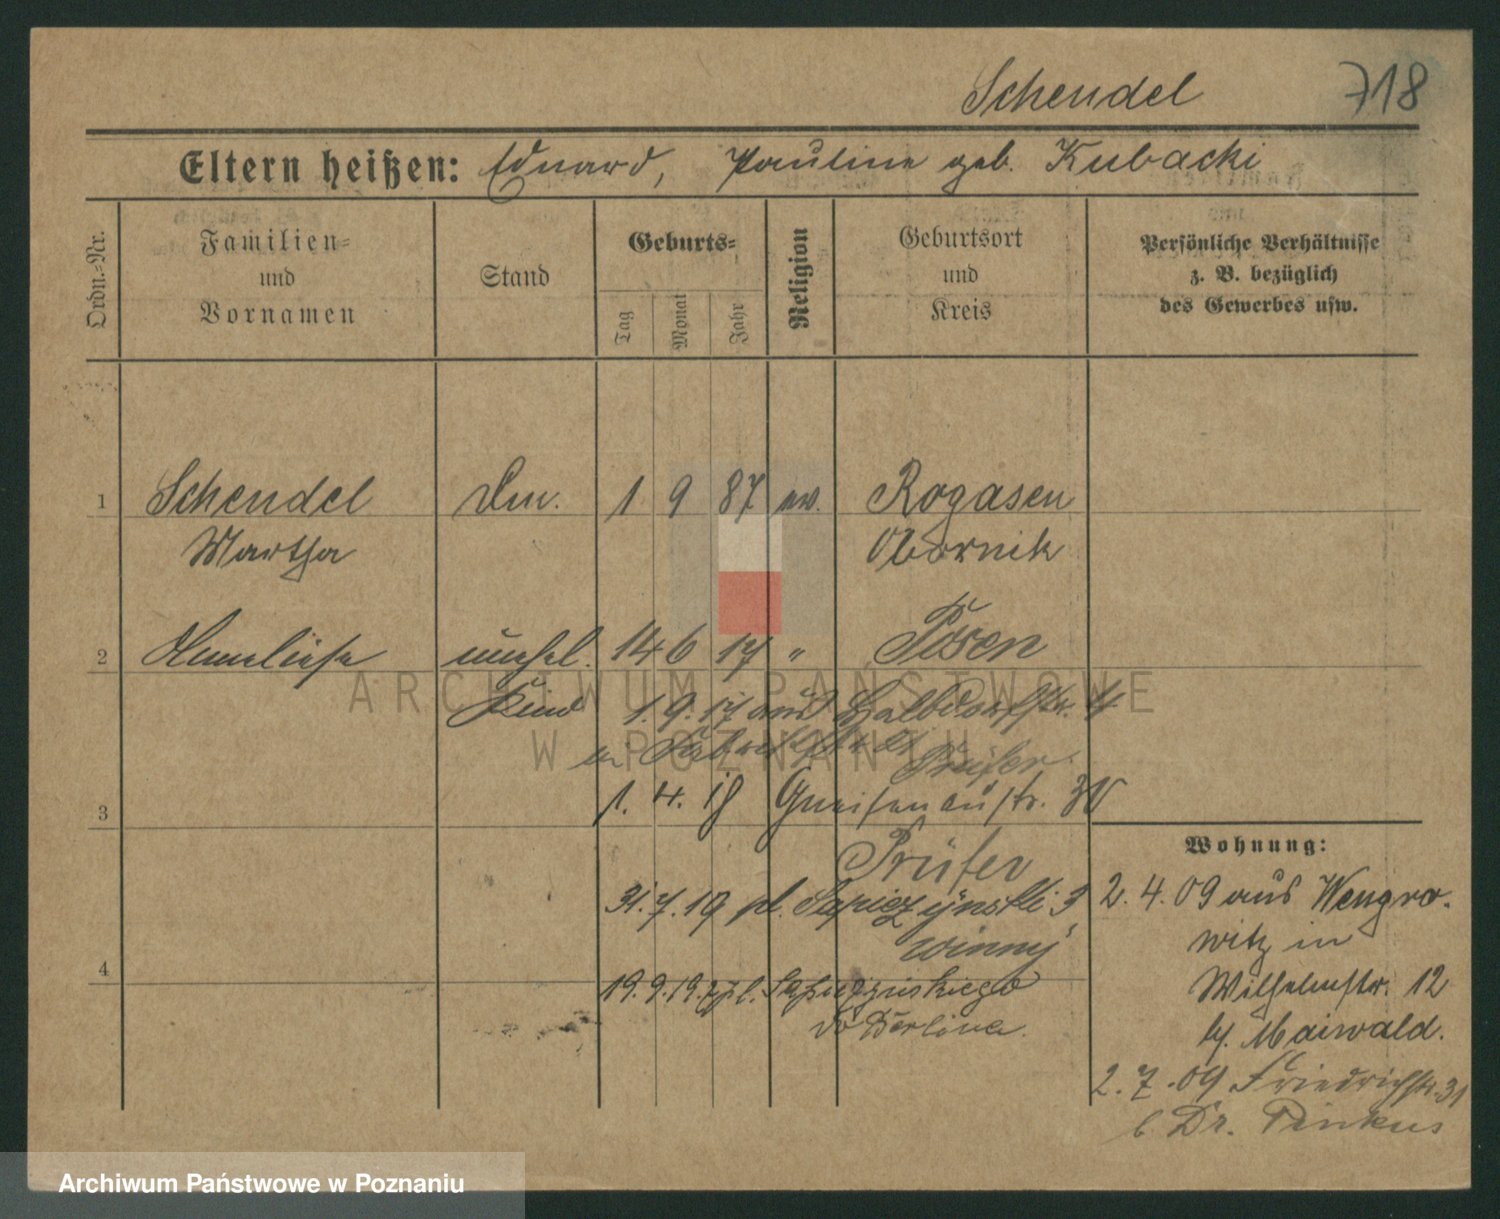 Schendel 718
Eltern heißen: Eduard, Pauline geb. Kubacki
Ordn.-Nr.
Familien-
und
Vornamen
Stand
Geburts-
Tag
Monat
Jahr
Religion
Geburtsort
und
Kreis
Persönliche Verhältnisse
z. B. bezüglich
des Gewerbes usw.
1 Schendel 1 9 87 ev. Rogasen
Martha Obornik
2 Anneliese unehel. 14 6 17 " Posen
Kind 1.9.17 aus Halbdorfstr.
Prüfer
3 1. 4. 18 Gneisenaustr.
Prüfer
31.7.19 pl. 3
winny
4 19.9.19. pl. Sapieżyńskiego
do Berlina.
Wohnung:
2. 4. 09 aus Wengro-
witz in
Wilhelmstr. 12
b/. Maiwald.
2. 7. 09 Friedrichstr. 31
b Dr. Pinkus
ARCHIWUM PAŃSTWOWE
W POZNANIU
Archiwum Państwowe w Poznaniu